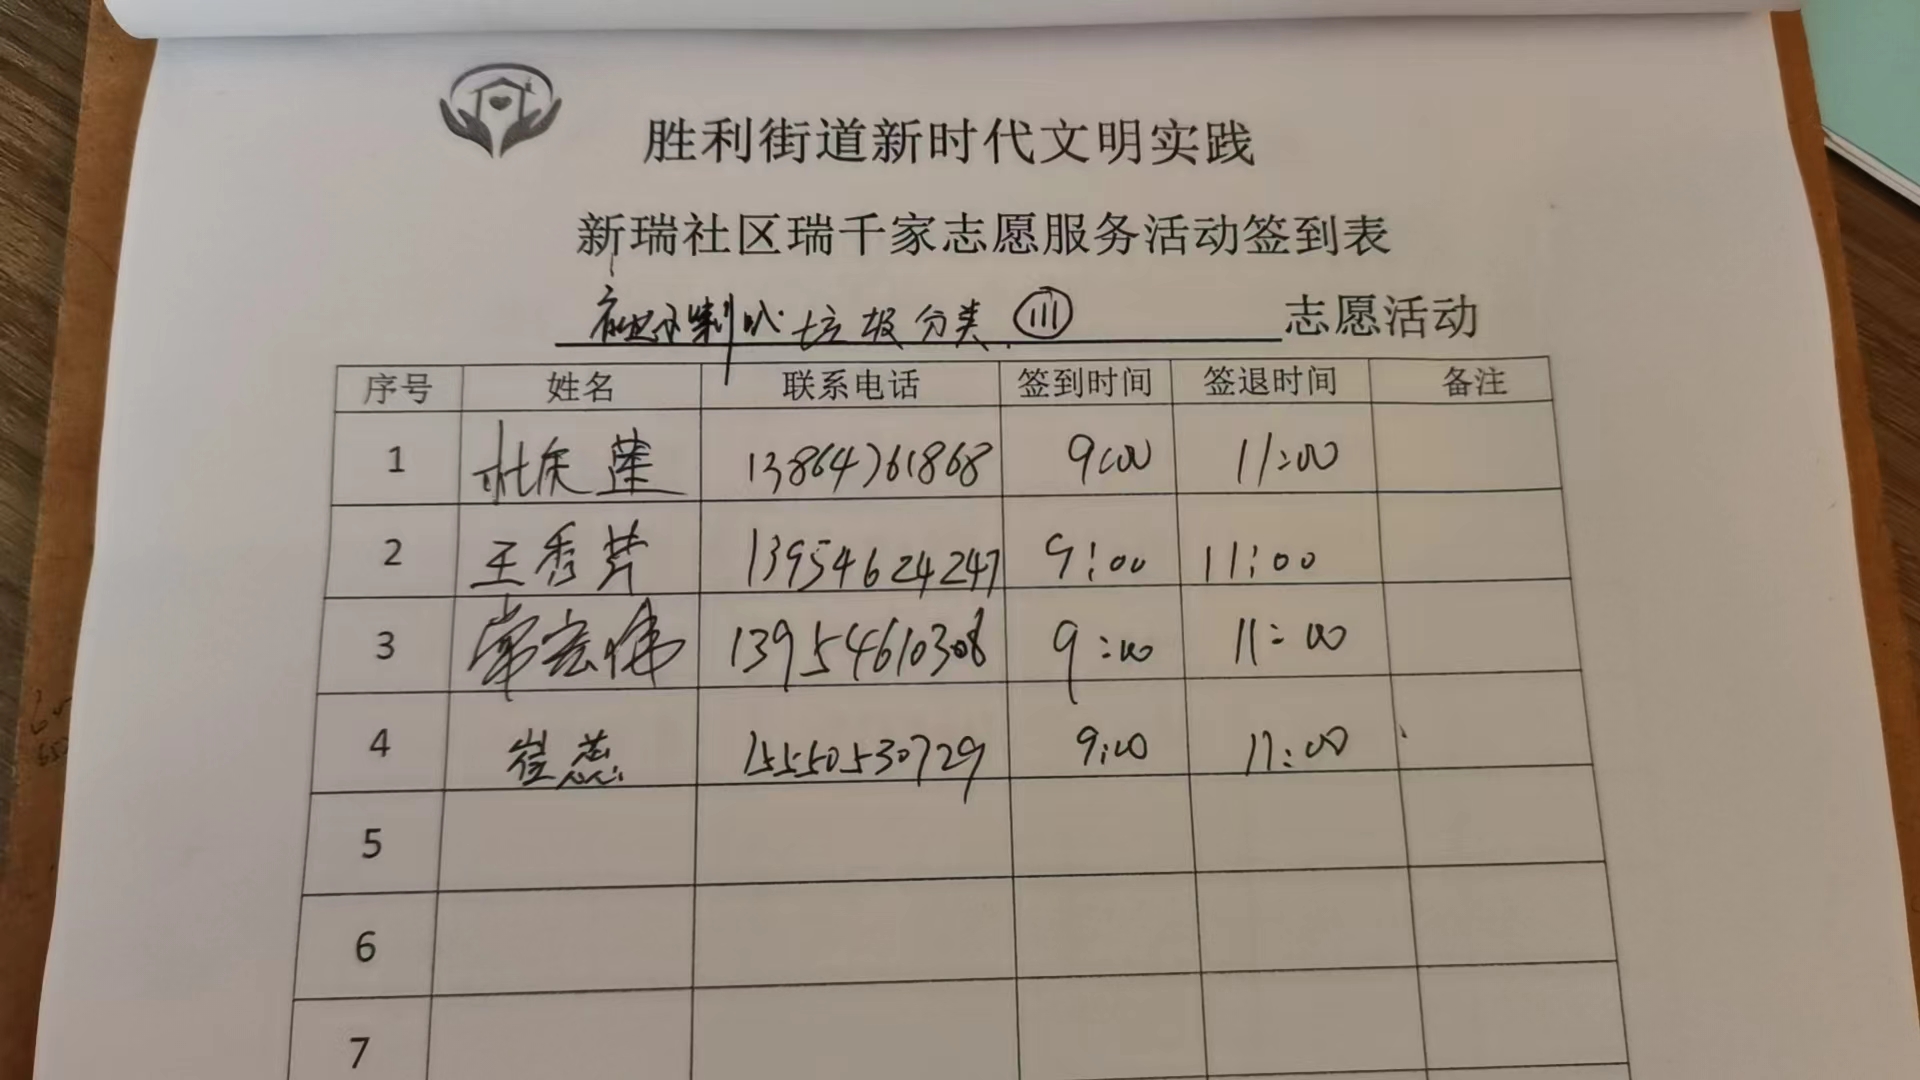 胜利街道新时代文明实践
新瑞社区瑞千家志愿服务活动签到表
社区小喇叭 垃圾分类 志愿活动
序号 姓名 联系电话 签到时间 签退时间 备注
1 杜庆莲 13864761868 9:00 11:00
2 王秀芹 13954624247 9:00 11:00
3 常宏伟 13954610308 9:00 11:00
4 崔蕊 15550530729 9:00 11:00
5
6
7